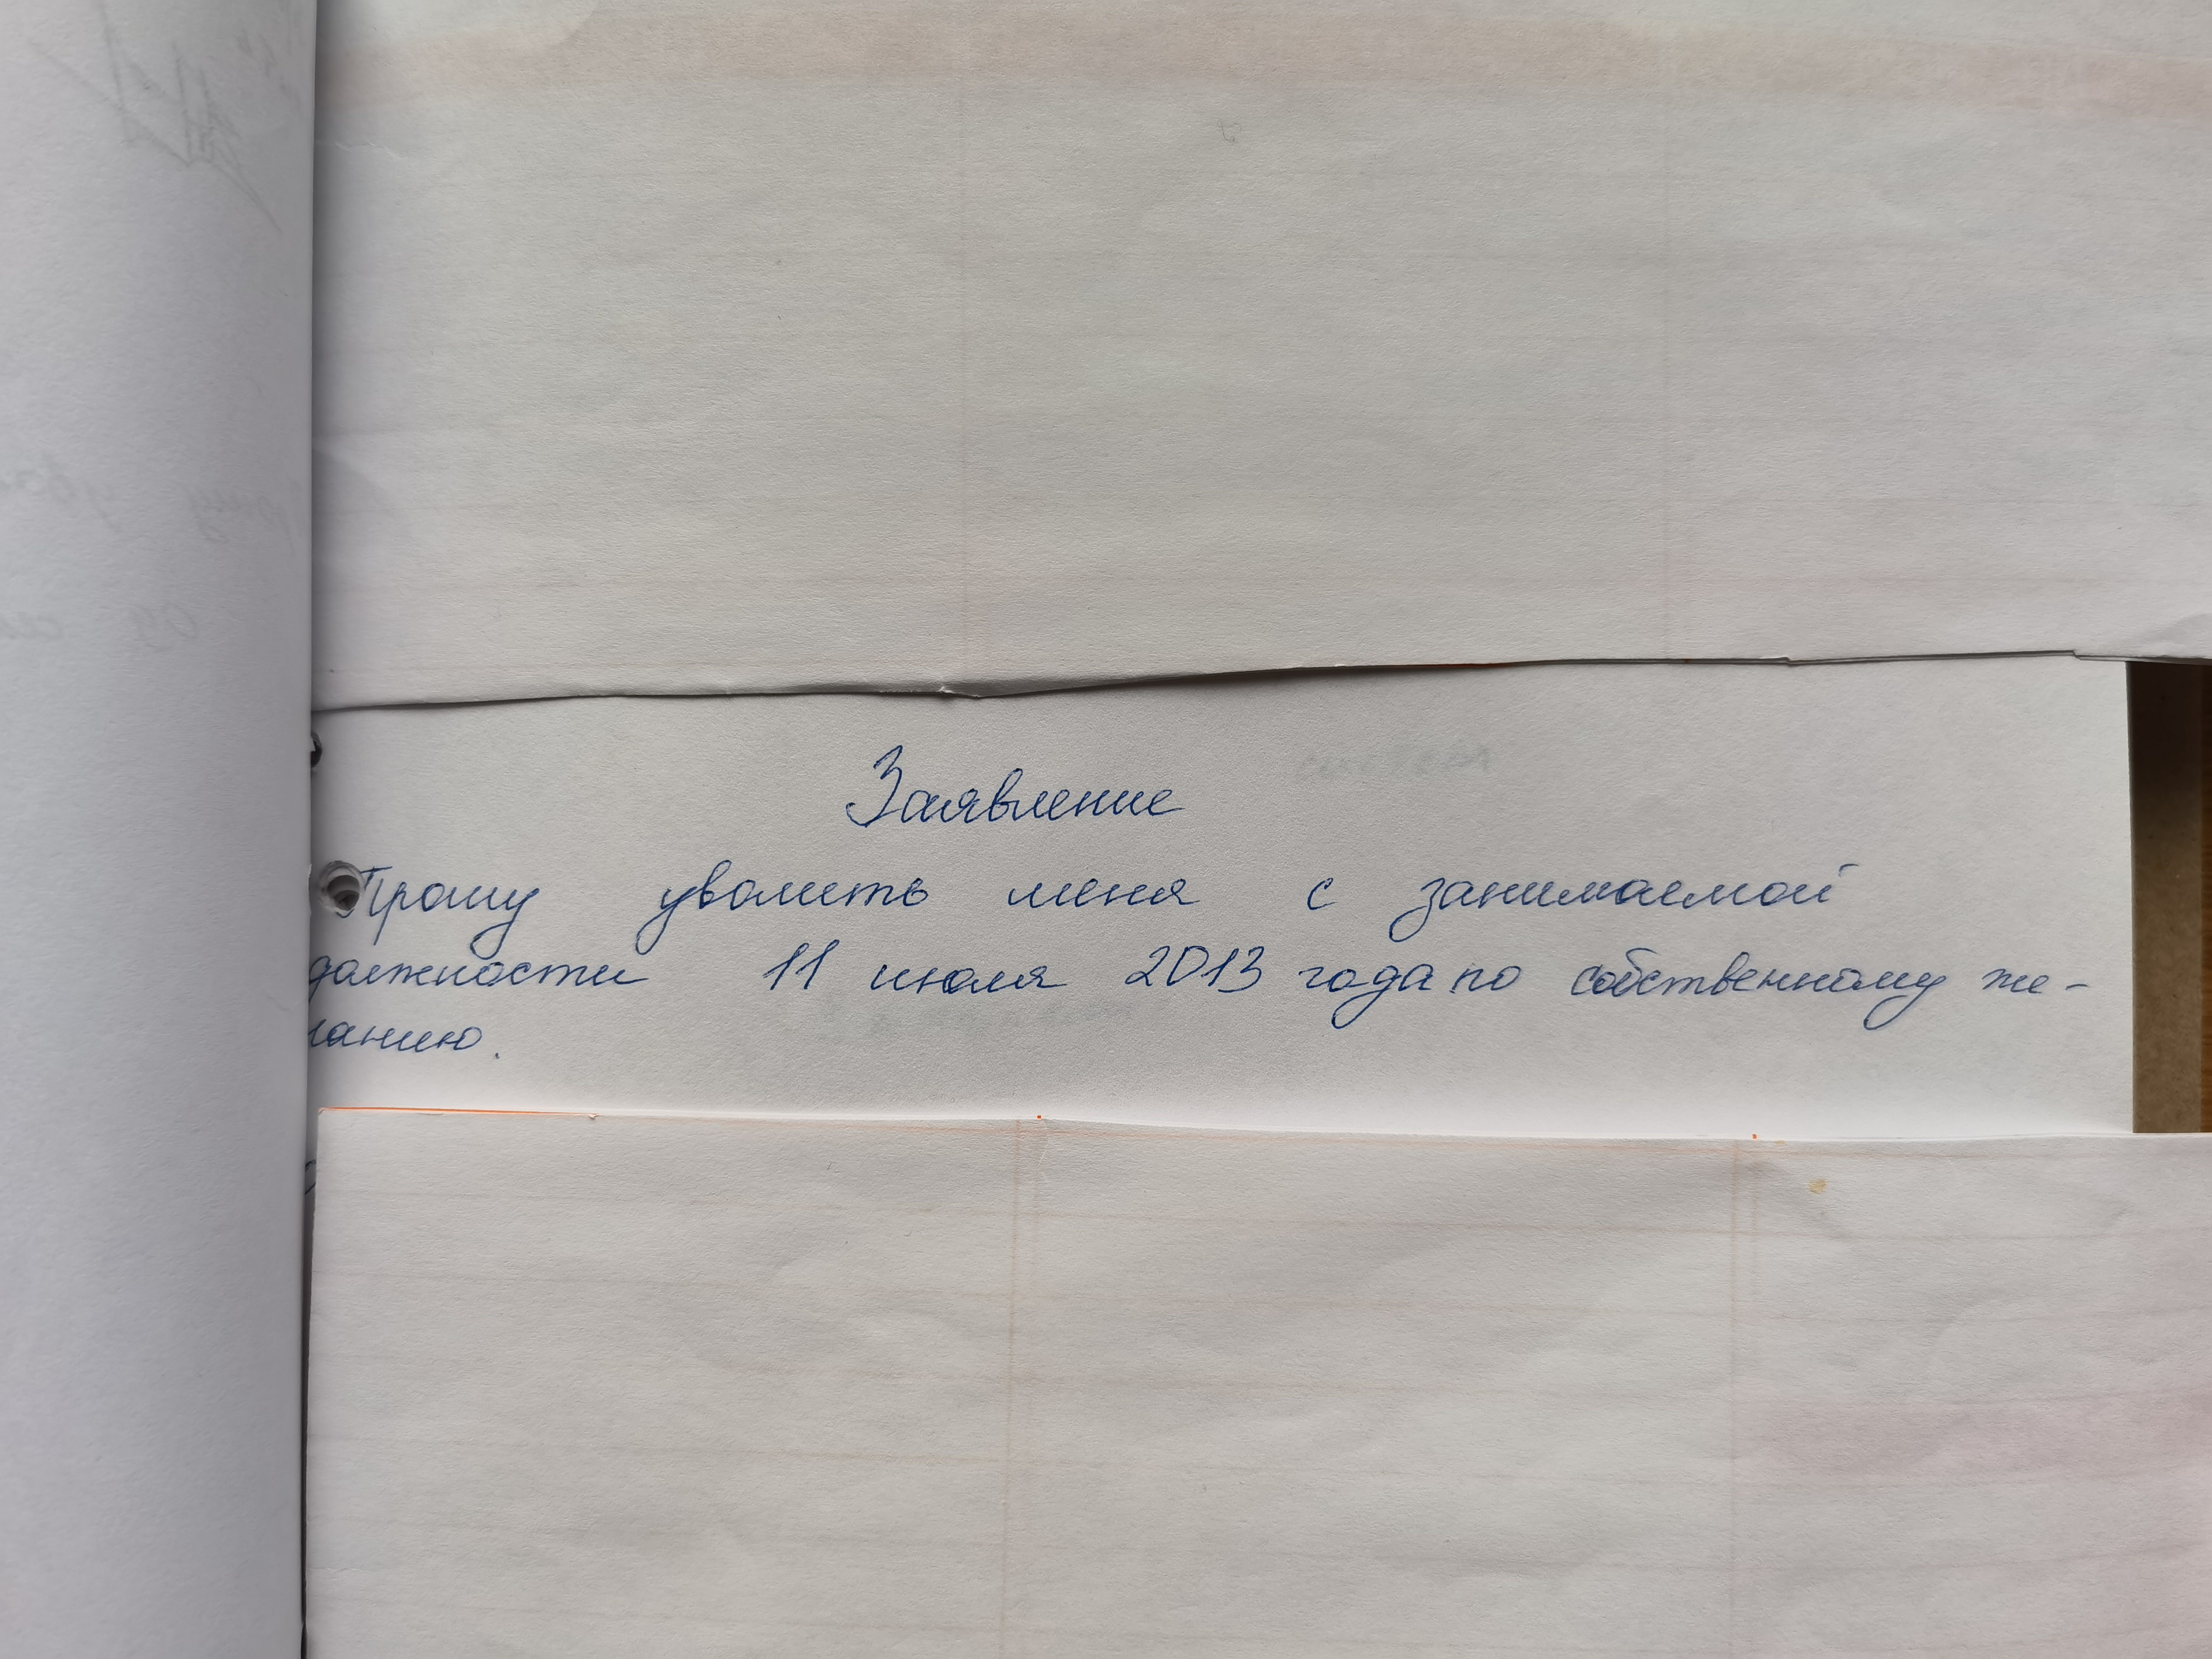 Заявление
Прошу уволить меня с занимаемой
должности 11 июля 2013 года по собственному же-
ланию.